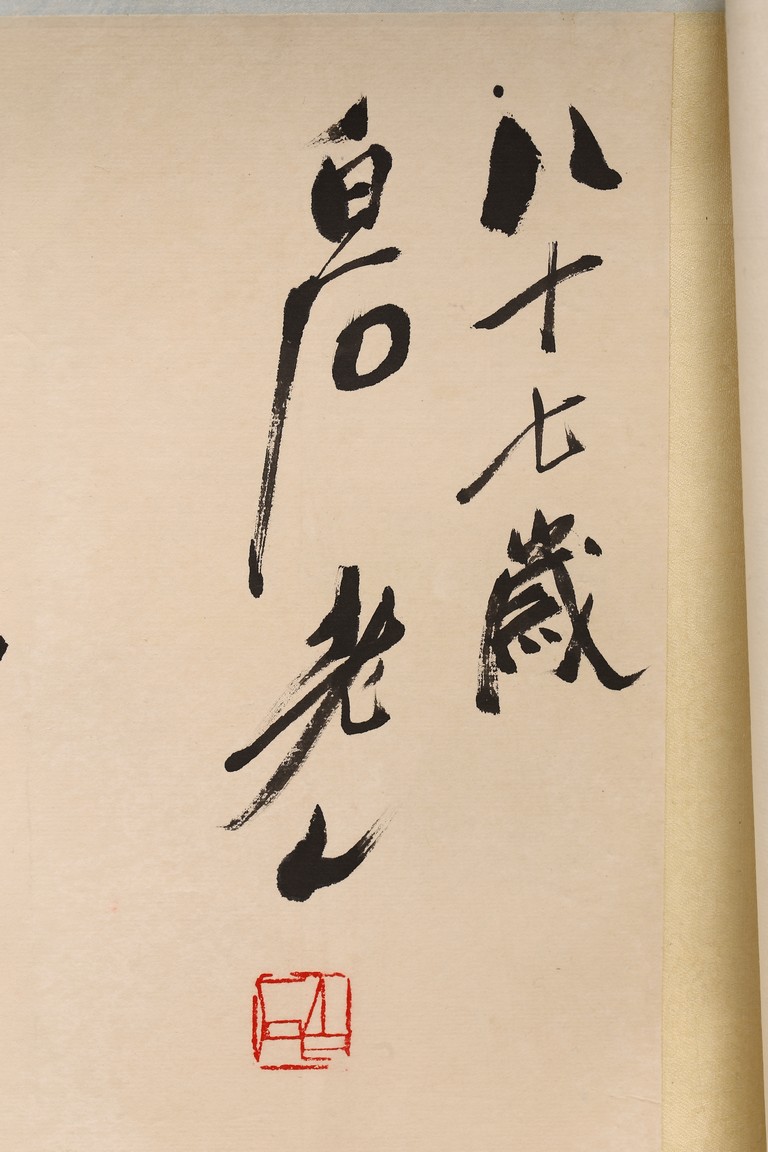 八十七歲
白石老人